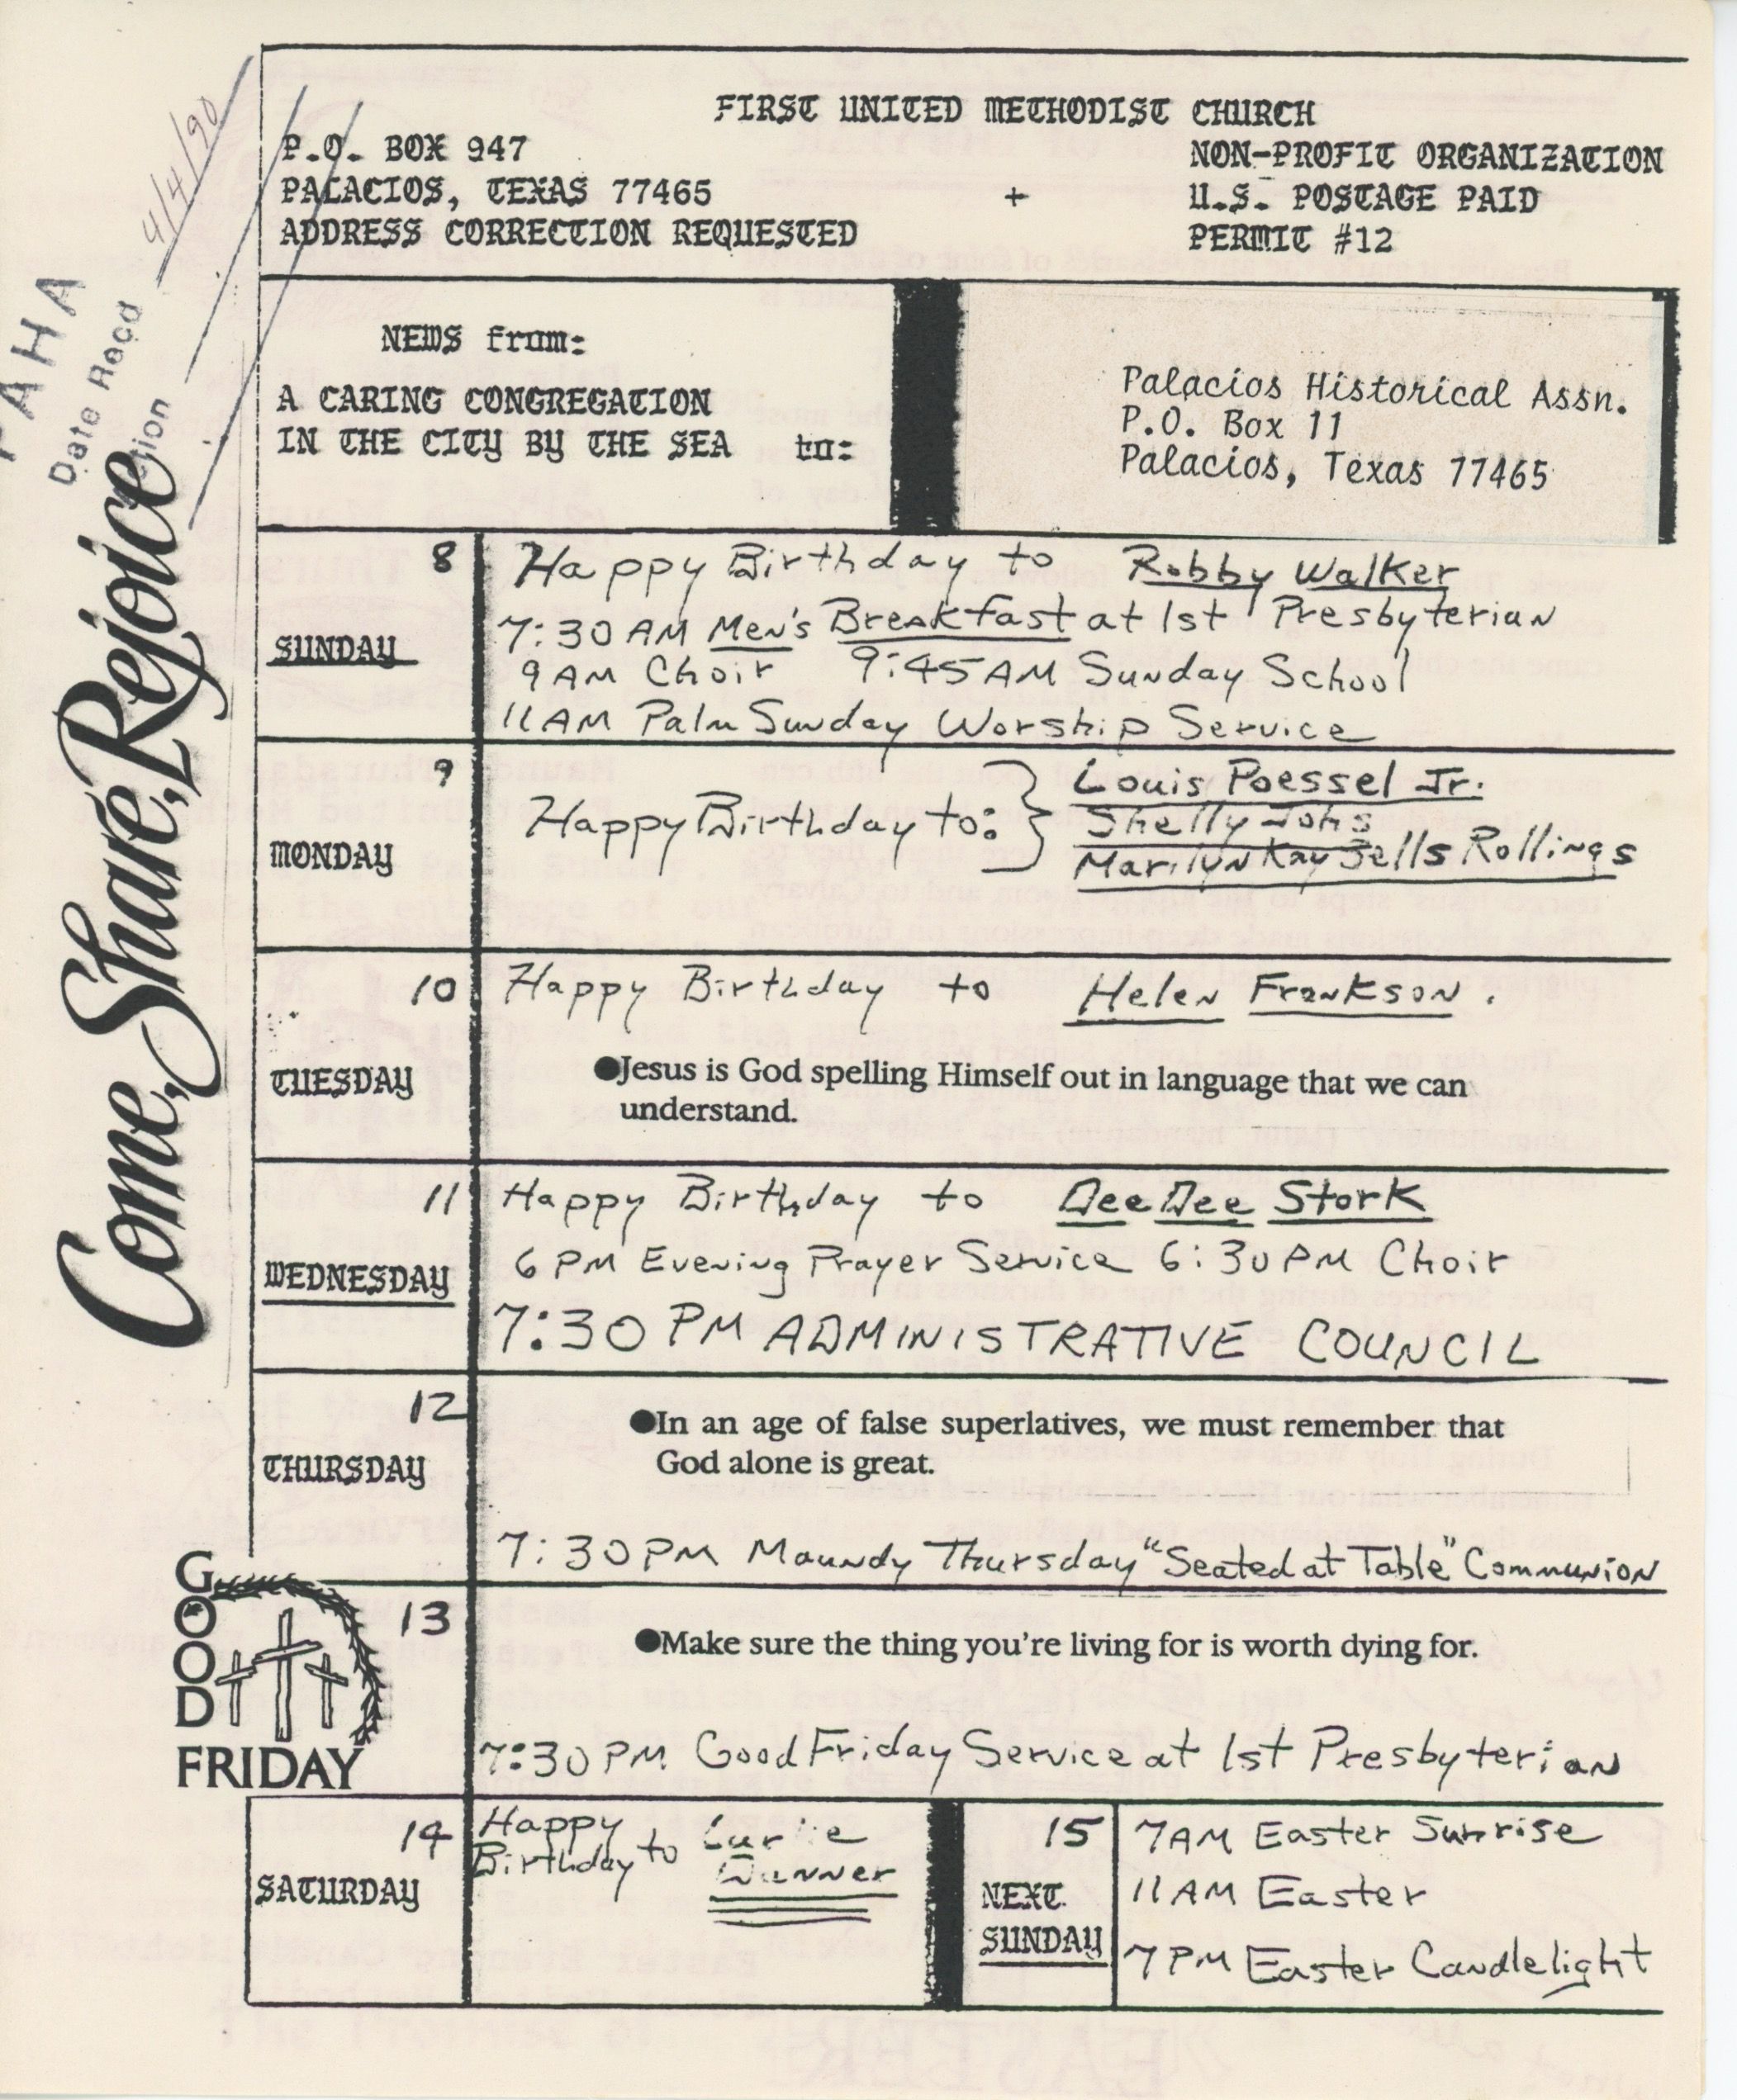 FIRST UNITED METHODIST CHURCH
P.O. BOX 947
PALACIOS, TEXAS 77465
ADDRESS CORRECTION REQUESTED
+
NON-PROFIT ORGANIZATION
U.S. POSTAGE PAID
PERMIT #12
4/4/90
PAHA
Date Recd
NEWS from:
A CARING CONGREGATION
IN THE CITY BY THE SEA to:
Palacios Historical Assn.
P.O. Box 11
Palacios, Texas 77465
Come, Share, Rejoice
8
SUNDAY
Happy Birthday to Robby Walker
7:30 AM Men's Breakfast at 1st Presbyterian
9 AM Choir 9:45 AM Sunday School
11 AM Palm Sunday Worship Service
9
MONDAY
Happy Birthday to:
Louis Poessel Jr.
Shelly Johs
Marilyn Kay Sells Rollings
10
TUESDAY
Happy Birthday to Helen Frankson.
●Jesus is God spelling Himself out in language that we can
understand.
11
WEDNESDAY
Happy Birthday to Dee Dee Stork
6 PM Evening Prayer Service 6:30 PM Choir
7:30 PM ADMINISTRATIVE COUNCIL
12
THURSDAY
●In an age of false superlatives, we must remember that
God alone is great.
7:30 PM Maundy Thursday "Seated at Table" Communion
13
GOOD
FRIDAY
●Make sure the thing you're living for is worth dying for.
7:30 PM Good Friday Service at 1st Presbyterian
14
SATURDAY
Happy
Birthday to
15
NEXT
SUNDAY
7 AM Easter Sunrise
11 AM Easter
7 PM Easter Candlelight